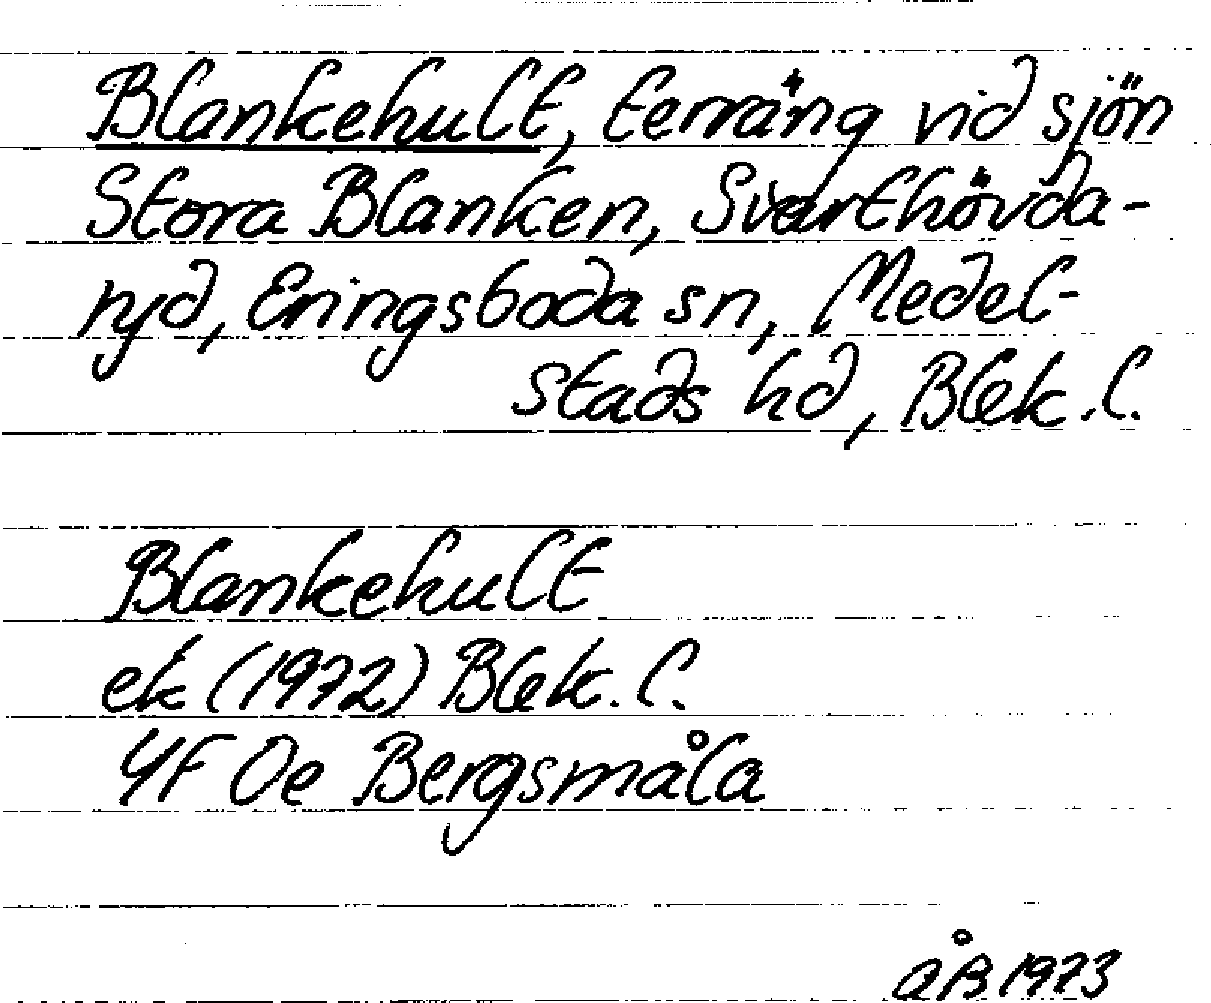 Blankehult, terräng vid sjön
Stora Blanken, Svarthövda-
ryd, Eringsboda sn, Medel-
stads hd, Blek. l.
Blankehult
ek (1972) Blek. l.
4F Oe Bergsmåla
åB 1973